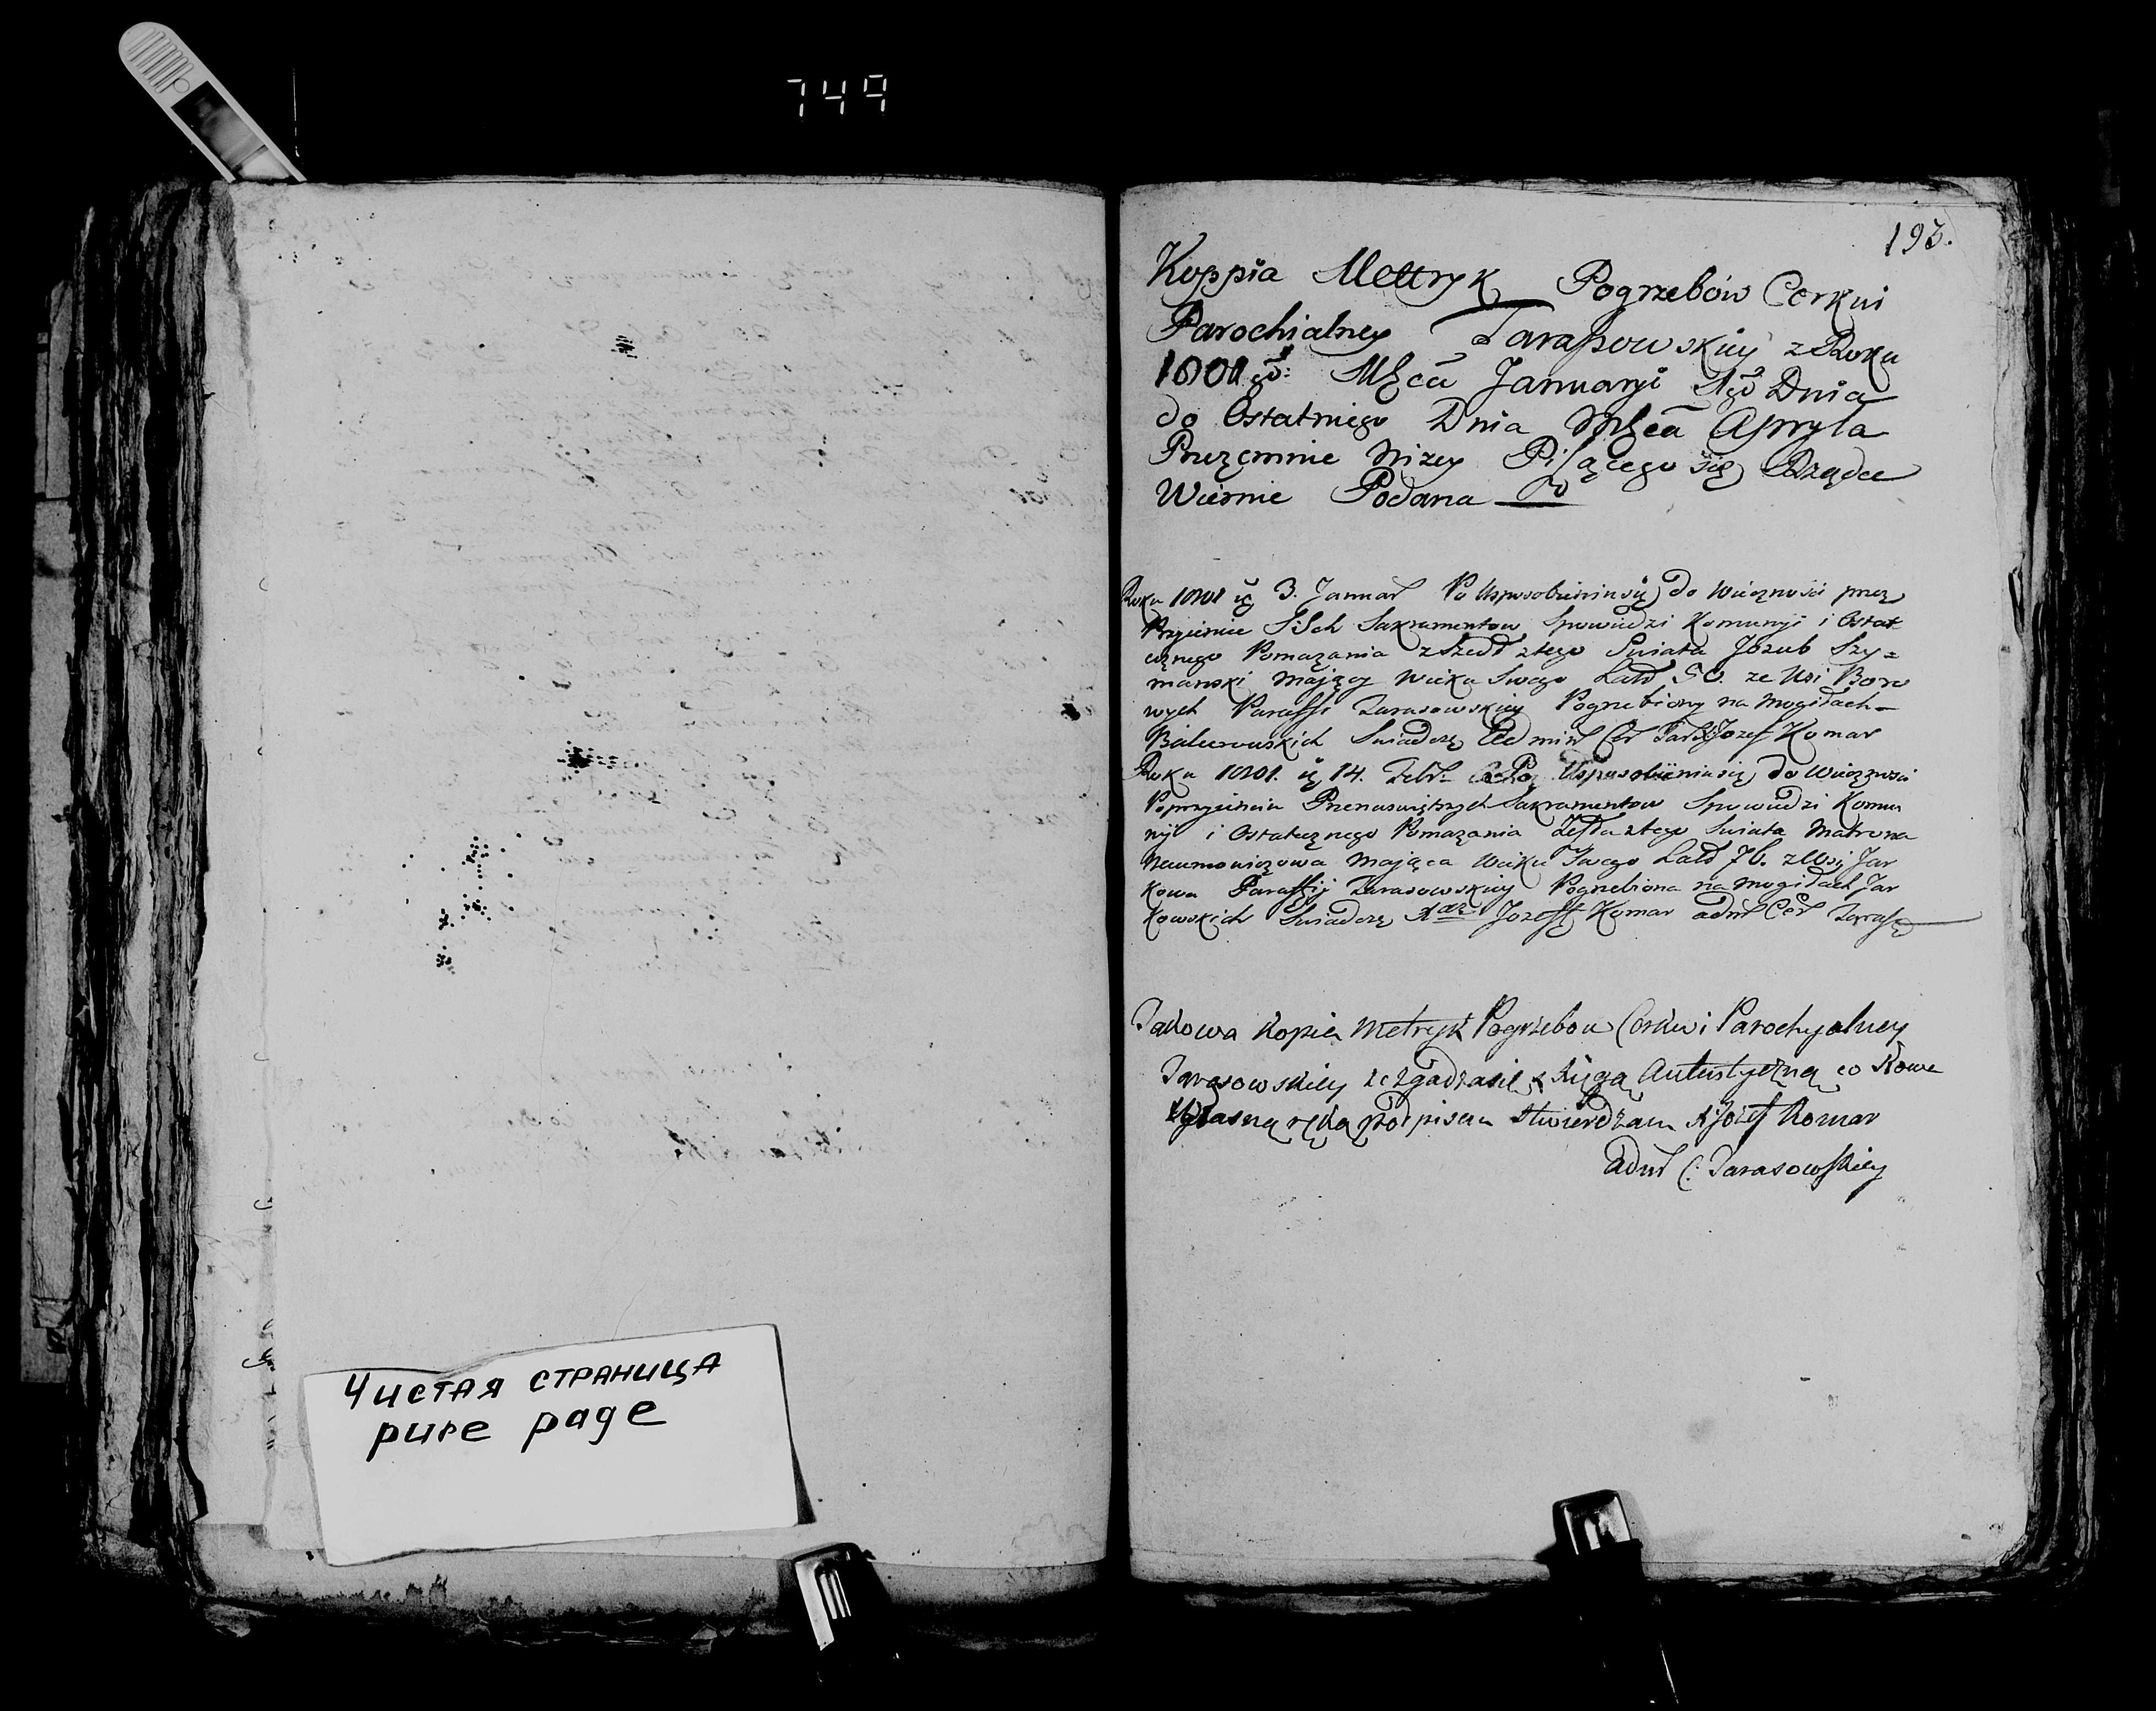 749
193.
Koppia Mettryk Pogrzebow Cerkwi
Parochialney Tarassowskiey z Roku
1801 go: Msca Januaryi 1go Dnia
do Ostatniego Dnia Msca Apryla
Przezemnie Nizey Piszącego się Rządce
Wiernie Podana
Roku 1801 3. Januar Po Usposobieniu się do Wieczności przez
Przyięcie SSch Sakramentow Spowiedzi Komunyi i Ostat
ecznego Pomazania zszedł z tego Swiata Jozub Szy=
manski mający Wieku Swego Latt 50. ze Wsi Boro
wych Paraffii Tarasowskiey Pogrzebiony na Mogiłach
Swiadczę Admin Cer Tars Jozef Komar
Roku 1801. 14. Febr Usposobieniu się do Wieczności
Poprzyięciu Przenaswiętrzych Sakramentow Spowiedzi Komu
nyi i Ostatecznego Pomazania Zeszła z tego Swiata Matrona
Naumowiczowa Mająca Wieku Swego Latt 76. z Wsi Jar
kowa Paraffij Tarasowskiey Pogrzebiona na Mogiłach Jar
kowskich Swiadczę Jozeff Komar adm Cer Tarass
Takowa Kopia Metryk Pogrzebow Cerkwi Parochyalney
Tarasowskiey ze zgadza się z Xięgą Autentyczną co
Własną ręką podpisem stwierdzam X Jozef Komar
adm C: Tarasowskiey
Чистая страница
pure page